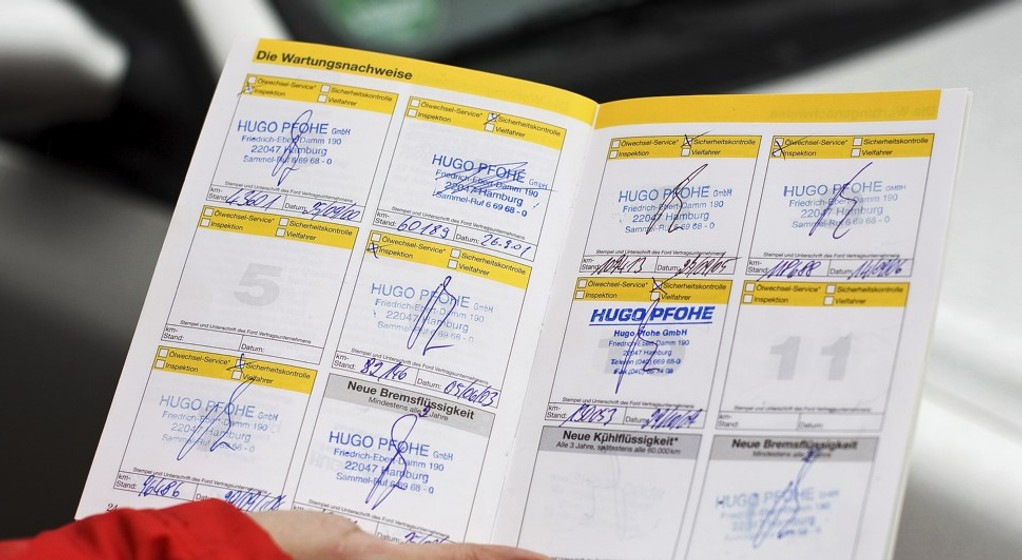 Die Wartungsnachweise
Ölwechsel-Service* Sicherheitskontrolle
Inspektion Vielfahrer
HUGO PFOHE GmbH
Friedrich-Ebert-Damm 190
22047 Hamburg
Sammel-Ruf 6 69 68 - 0
Stempel und Unterschrift des Ford Vertragsunternehmens
km-
Stand: Datum:
Ölwechsel-Service* Sicherheitskontrolle
Inspektion Vielfahrer
HUGO PFOHE GmbH
Friedrich-Ebert-Damm 190
22047 Hamburg
Sammel-Ruf 6 69 68 - 0
Stempel und Unterschrift des Ford Vertragsunternehmens
km-
Stand: 60189 Datum: 26.9.01
Ölwechsel-Service* Sicherheitskontrolle
Inspektion Vielfahrer
5
Stempel und Unterschrift des Ford Vertragsunternehmens
km-
Stand: Datum:
Ölwechsel-Service* Sicherheitskontrolle
Inspektion Vielfahrer
HUGO PFOHE GmbH
Friedrich-Ebert-Damm 190
22047 Hamburg
Sammel-Ruf 6 69 68 - 0
Stempel und Unterschrift des Ford Vertragsunternehmens
km-
Stand: 82146 Datum: 05/06/03
Ölwechsel-Service* Sicherheitskontrolle
Inspektion Vielfahrer
HUGO PFOHE GmbH
Friedrich-Ebert-Damm 190
22047 Hamburg
Sammel-Ruf 6 69 68 - 0
Stempel und Unterschrift des Ford Vertragsunternehmens
km-
Stand: 96486 Datum:
24
Neue Bremsflüssigkeit
Mindestens alle 2 Jahre
HUGO PFOHE GmbH
Friedrich-Ebert-Damm 190
22047 Hamburg
Sammel-Ruf 6 69 68 - 0
Stempel und Unterschrift des Ford Vertragsunternehmens
km-
Ölwechsel-Service* Sicherheitskontrolle
Inspektion Vielfahrer
HUGO PFOHE GmbH
Friedrich-Ebert-Damm 190
22047 Hamburg
Sammel-Ruf 6 69 68 - 0
Stempel und Unterschrift des Ford Vertragsunternehmens
km-
Stand: Datum:
Ölwechsel-Service* Sicherheitskontrolle
Inspektion Vielfahrer
HUGO PFOHE GMBH
Friedrich-Ebert-Damm 190
22047 Hamburg
Sammel-Ruf 6 69 68 - 0
Stempel und Unterschrift des Ford Vertragsunternehmens
km-
Stand: Datum:
Ölwechsel-Service* Sicherheitskontrolle
Inspektion Vielfahrer
HUGO PFOHE
Hugo Pfohe GmbH
Friedrich-Ebert-Damm 190
22047 Hamburg
Telefon (040) 669 68-0
Stempel und Unterschrift des Ford Vertragsunternehmens
km-
Stand: Datum:
Ölwechsel-Service* Sicherheitskontrolle
Inspektion Vielfahrer
11
Stempel und Unterschrift des Ford Vertragsunternehmens
km-
Stand: Datum:
Neue Kühlflüssigkeit*
Alle 3 Jahre, spätestens alle 60.000 km
Neue Bremsflüssigkeit
Mindestens alle Jahre
HUGO PFOHE GmbH
Friedrich-Ebert-Damm 190
22047 Hamburg